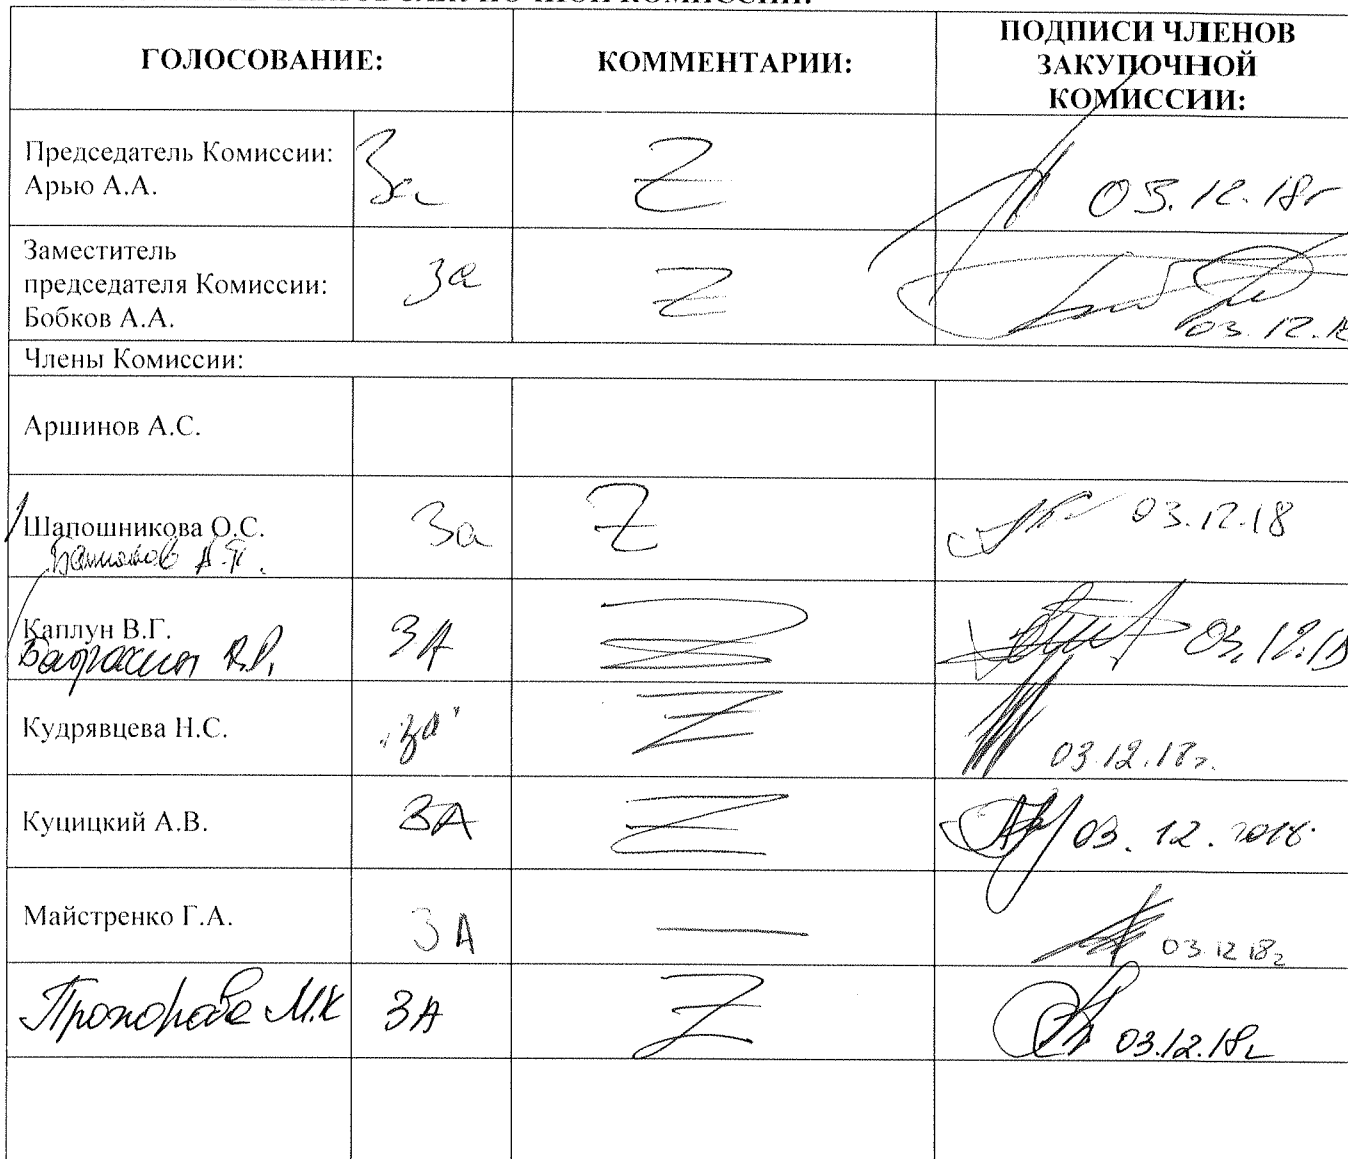 ГОЛОСОВАНИЕ:
КОММЕНТАРИИ:
ПОДПИСИ ЧЛЕНОВ
ЗАКУПОЧНОЙ
КОМИССИИ:
Председатель Комиссии:
Арью А.А.
За
Z
03.12.18г
Заместитель
председателя Комиссии:
Бобков А.А.
За
Z
03.12.18
Члены Комиссии:
Аршинов А.С.
Шапошникова О.С.
А.П.
За
Z
03.12.18
Каплун В.Г.
ЗА
Z
03.12.18
Кудрявцева Н.С.
"за"
Z
03.12.18г.
Куцицкий А.В.
ЗА
Z
03.12.2018
Майстренко Г.А.
ЗА
—
03.12 18г
Прохорова М.К
ЗА
Z
03.12.18г